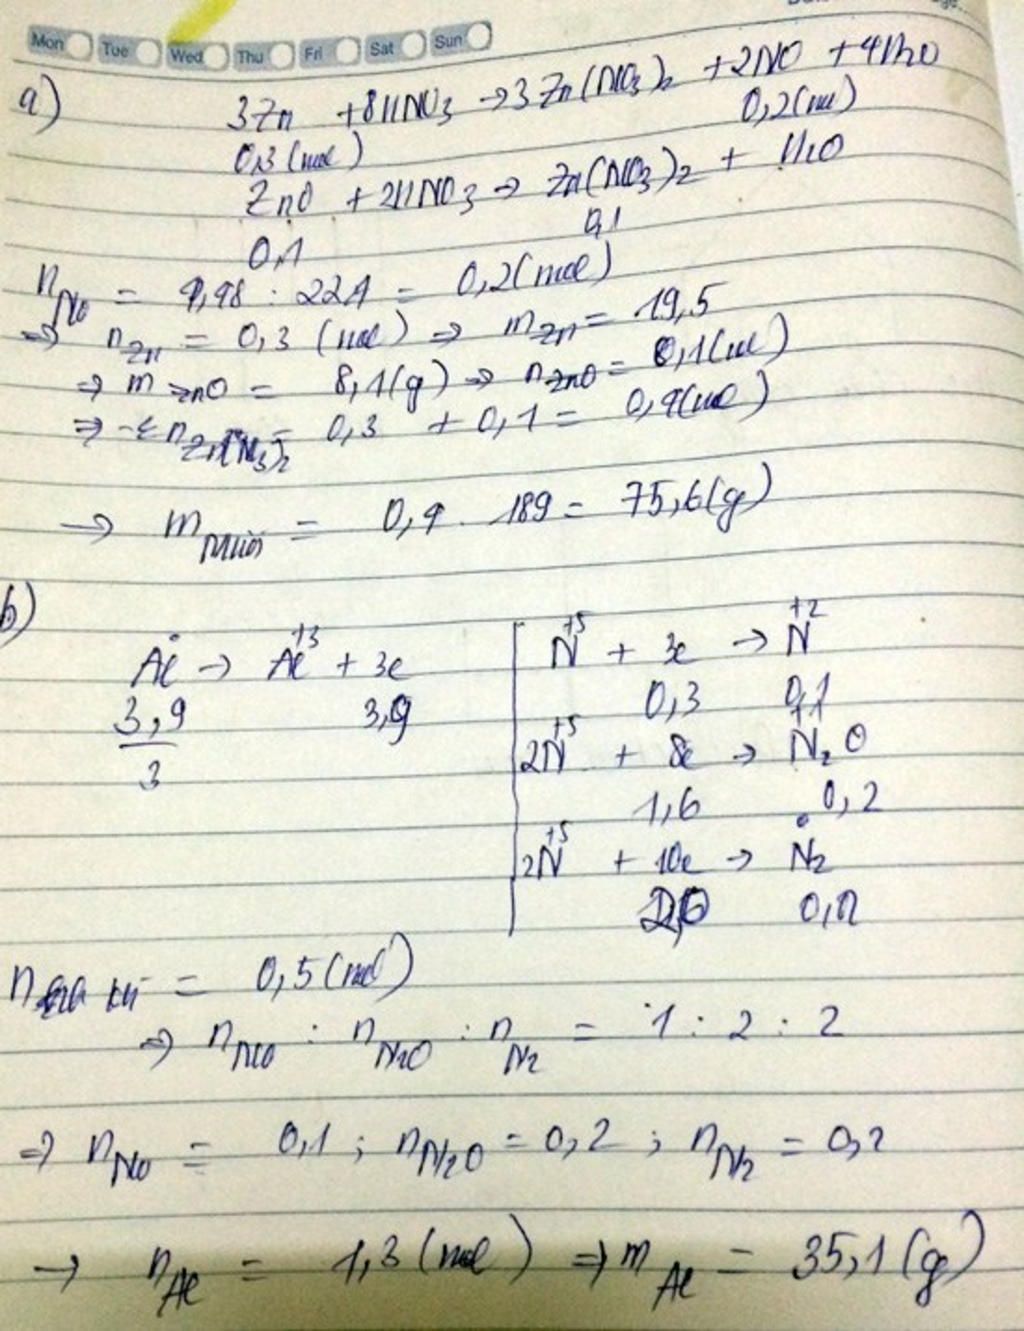 Mon Tue Wed Thu Fri Sat Sun
a)
3Zn + 8HNO3 → 3Zn(NO3)2 + 2NO + 4H2O
0,3 (mol) 0,2 (mol)
ZnO + 2HNO3 → Zn(NO3)2 + H2O
0,1 0,1
nNO = 4,48 : 22,4 = 0,2 (mol)
⇒ nZn = 0,3 (mol) ⇒ mZn = 19,5
⇒ mZnO = 8,1 (g) ⇒ nZnO = 0,1 (mol)
⇒ Σ nZn(NO3)2 = 0,3 + 0,1 = 0,4 (mol)
→ mMuối = 0,4 . 189 = 75,6 (g)
b)
Al → Al+3 + 3e
3,9/3 3,9
N+5 + 3e → N+2
0,3 0,1
2N+5 + 8e → N2+1O
1,6 0,2
2N+5 + 10e → N2
2,0 0,2
n khí = 0,5 (mol)
⇒ nNO : nN2O : nN2 = 1 : 2 : 2
⇒ nNO = 0,1 ; nN2O = 0,2 ; nN2 = 0,2
→ nAl = 1,3 (mol) ⇒ mAl = 35,1 (g)